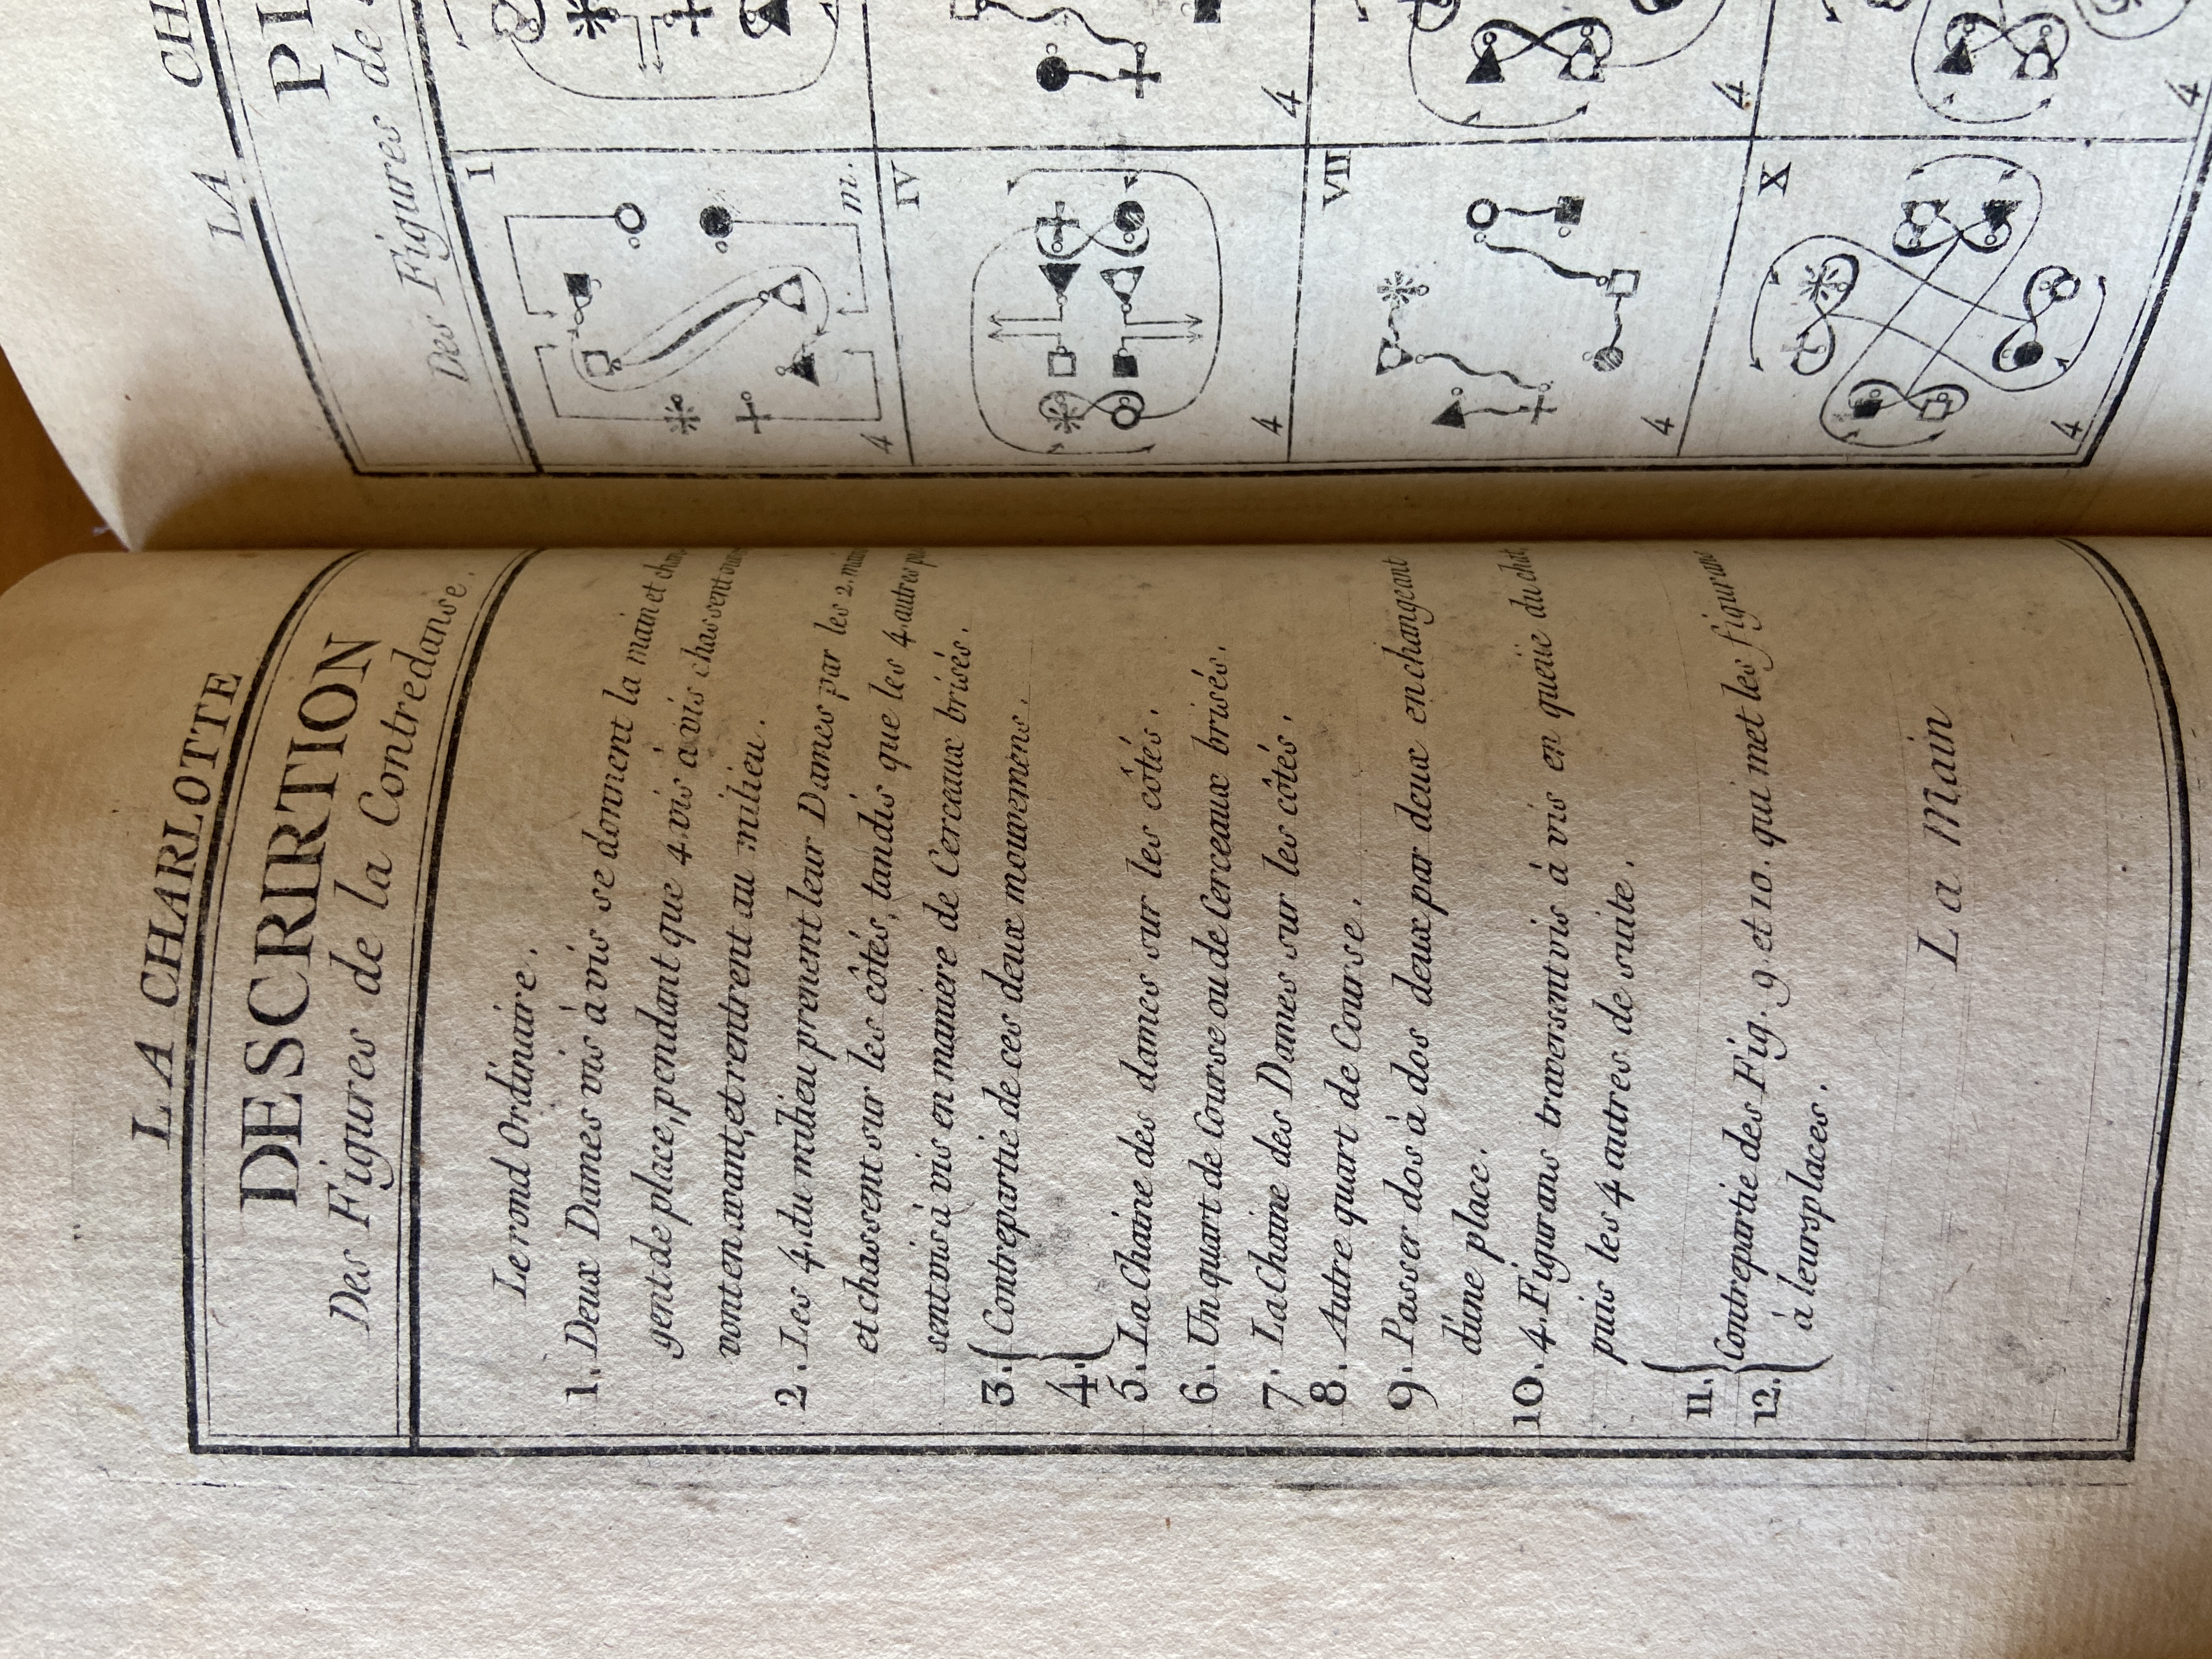 LA CHARLOTTE
DESCRIRTION
Des Figures de la Contredanse.
Le rond Ordinaire.
1. Deux Dames vis à vis se donnent la main et chan
gent de place, pendant que 4. vis à vis chassent
vont en avant, et rentrent au milieu.
2. Les 4. du milieu prennent leur Dames par les 2. main
et chassent sur les côtés, tandis que les 4 autres
sent vis à vis en maniere de Cerceaux brisés.
3. { Contrepartie de ces deux mouvemens.
4. {
5. La Chaine des dames sur les côtés.
6. Un quart de Course ou de Cerceaux brisés.
7. La Chaine des Dames sur les côtés.
8. Autre quart de Course.
9. Passer dos à dos deux par deux en changeant
d'une place.
10. 4. Figurans traversent vis à vis en queüe du chat,
puis les 4 autres de suite.
11. { Contrepartie des Fig. 9 et 10. qui met les figurans
12. { à leurs places.
La Main
LA CH
PL
Des Figures de
I
m.
4
IV
4
4
VII
4
4
X
4
4